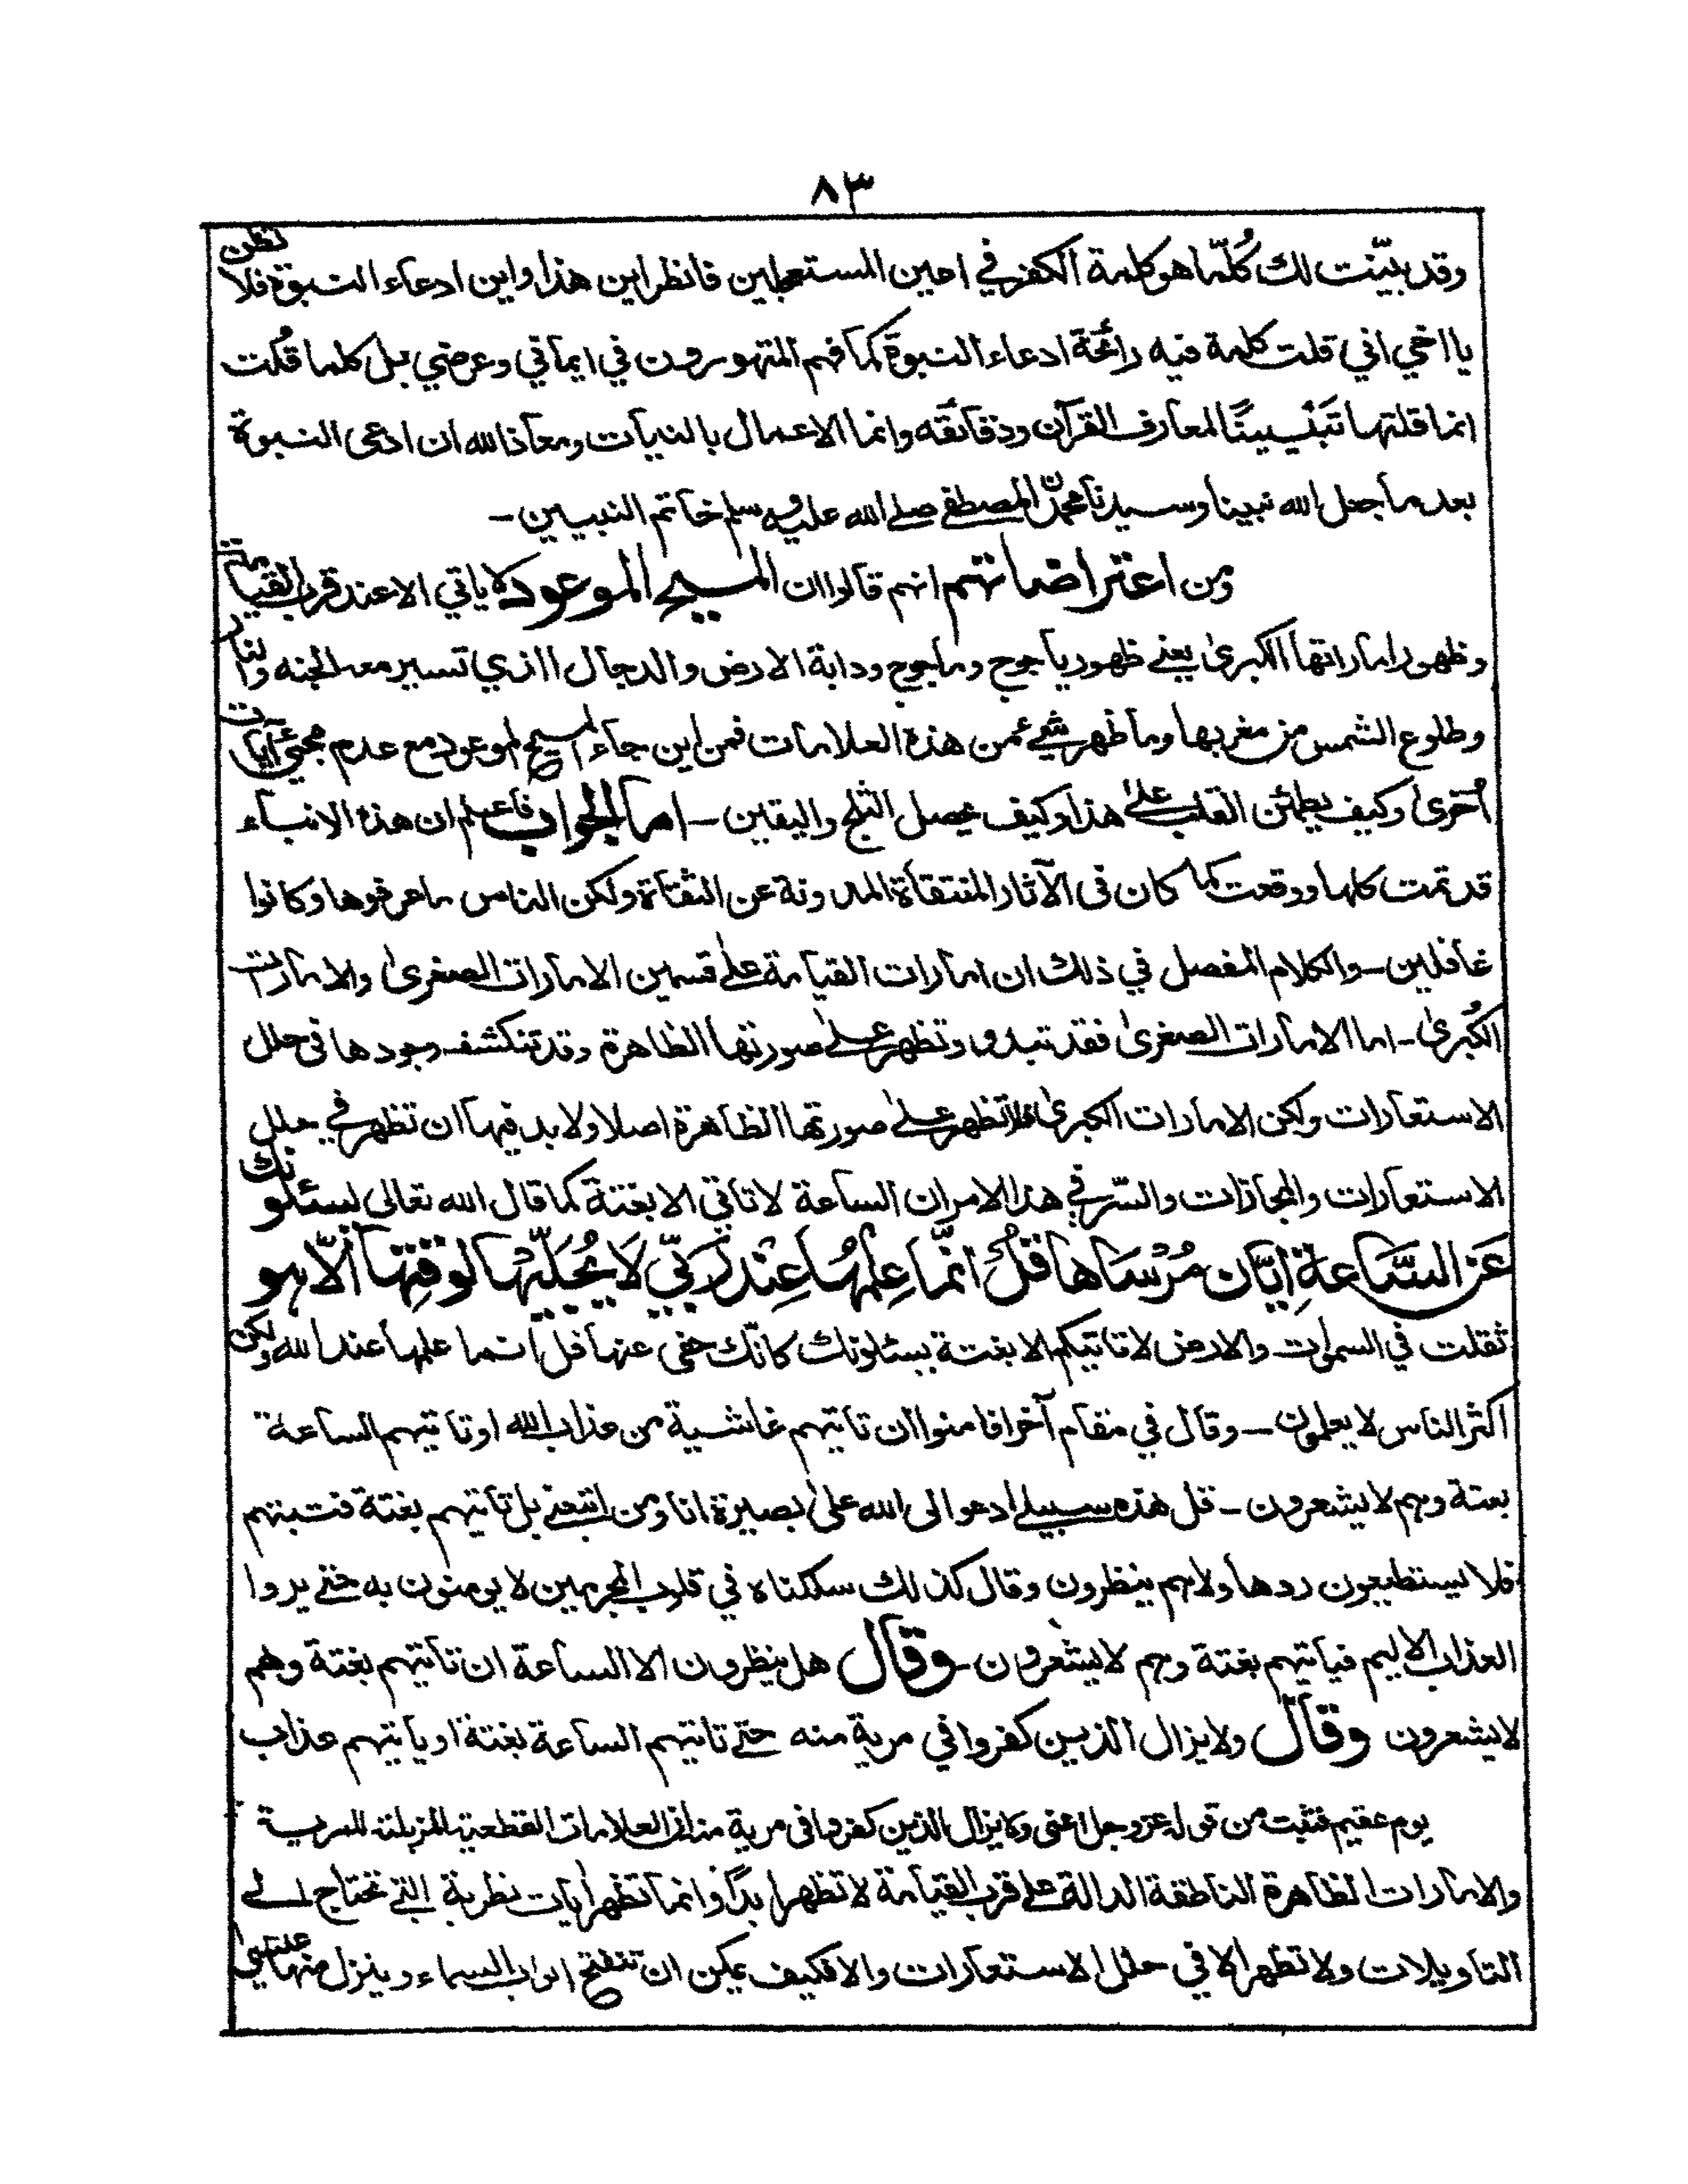 ٨٣
وقد بيّنت لك كُلّما هو كلمة الكفر في اعين المستعجلين فانظر اين هذا واين ادعاء النبوة فلا تظن
يا اخي اني قلت كلمة فيه رائحة ادعاء النبوة كما فهم المتهورون في ايماني وعرضي بل كلما قُلت
انما قلتها تَبْيِيِنًا لمعارف القرآن ودقائقه وانما الاعمال بالنيات ومعاذ الله ان ادعى النبوة
بعد ما جعل الله نبينا وسيدنا محمدًن المصطفى صلى الله عليه وسلم خاتم النبيين -
ومن اعتراضاتهم انهم قالوا ان المسيح الموعود لا ياتي الا عند قرب القيامة
وظهور اماراتها الكبرىٰ يعنے ظهور ياجوج وماجوج ودابة الارض والدجال الذي تسير معه الجنه والنار
وطلوع الشمس من مغربها وما ظهر شيء من هذه العلامات فمن اين جاء المسيح الموعود مع عدم مجيئ آيات
اُخرىٰ وكيف يطمئن القلب علىٰ هذا وكيف يحصل الثلج واليقين - اما الجواب فاعلم ان هذه الانباء
قد تمت كلها ووقعت كما كان فى الآثار المنتقاة المدونة عن الثقاة ولكن الناس ما عرفوها وكانوا
غافلين - والكلام المفصل في ذلك ان امارات القيامة علىٰ قسمين الامارات الصغرىٰ والامارات
الكُبرىٰ - اما الامارات الصغرىٰ فقد تبدو وتظهر علىٰ صورتها الظاهرة وقد تنكشف وجودها فى حلل
الاستعارات ولكن الامارات الكبرىٰ فلا تظهر علىٰ صورتها الظاهرة اصلا ولا بد فيها ان تظهر في حلل
الاستعارات والمجازات والسّر في هذا الامر ان الساعة لا تاتي الا بغتة كما قال الله تعالى يسئلونك
عَنِ السَّاعةِ ايَّان مُرْسَاها قُلْ انَّما عِلمُهَا عِنْدَ رَبّي لَا يُجَلّيْها لوقتها اِلّا هو
ثقلت في السمٰوات والارض لا تاتيكم الا بغتة يسئلونك كانّك حفى عنها قل انما علمها عند الله ولكن
اكثر الناس لا يعلمون - وقال في مقام آخر افامنوا ان تاتيهم غاشية من عذاب الله او تاتيهم الساعة
بغتة وهم لا يشعرون - قل هٰذه سبيلے ادعوا الى الله علىٰ بصيرة انا ومن اتبعنے بل تاتيهم بغتة فتبهتهم
فلا يستطيعون ردها ولا هم ينظرون وقال كذلك سلكناه في قلوب المجرمين لا يومنون به حتے يروا
العذاب الاليم فياتيهم بغتة وهم لا يشعرون - وقال هل ينظرون الا الساعة ان تاتيهم بغتة وهم
لا يشعرون وقال ولا يزال الذين كفروا في مرية منه حتے تاتيهم الساعة بغتة او ياتيهم عذاب
يوم عقيم فثبت من قوله عز وجل اعنى ولا يزال الذين كفروا فى مرية منه ان العلامات القطعية المزيلة للمرية
والامارات الظاهرة الناطقة الدالة علىٰ قرب القيامة لا تظهر ابدًا وانما تظهر اٰيات نظرية التے تحتاج الے
التاويلات ولا تظهر الا في حلل الاستعارات والا فكيف يمكن ان تنفتح ابواب السماء وينزل منها عيسىٰ